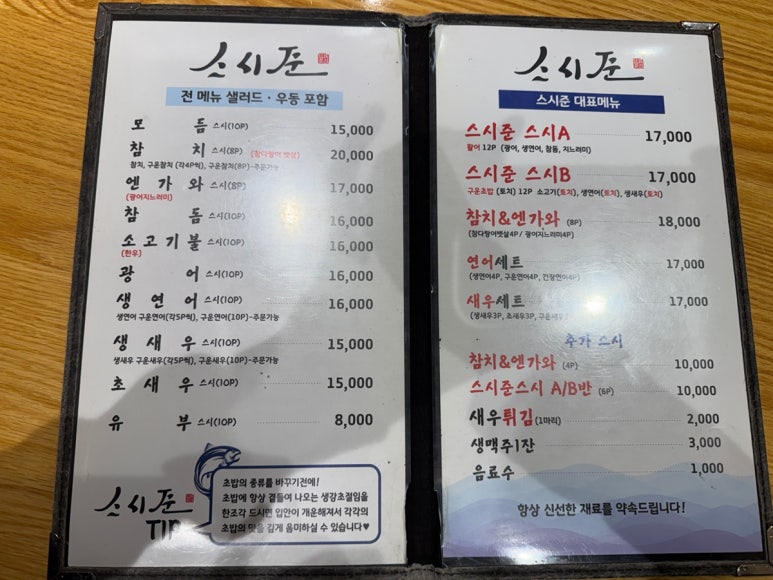 스시준
전 메뉴 샐러드 · 우동 포함
모 듬 스시(10P) 15,000
참 치 스시(8P) (참다랑어 뱃살) 20,000
참치, 구운참치 (각4P씩), 구운참치(8P)-주문가능
엔 가 와 스시(8P) 17,000
(광어지느러미)
참 돔 스시(10P) 16,000
소 고 기 불 스시(10P) 16,000
(한우)
광 어 스시(10P) 16,000
생 연 어 스시(10P) 16,000
생연어 구운연어(각5P씩), 구운연어(10P)-주문가능
생 새 우 스시(10P) 15,000
생새우 구운새우(각5P씩), 구운새우(10P)-주문가능
초 새 우 스시(10P) 15,000
유 부 스시(10P) 8,000
스시준
TIP
초밥의 종류를 바꾸기전에!
초밥에 항상 곁들여 나오는 생강초절임을
한조각 드시면 입안이 개운해져서 각각의
초밥의 맛을 깊게 음미하실 수 있습니다♥
스시준
스시준 대표메뉴
스시준 스시A 17,000
활어 12P (광어, 생연어, 참돔, 지느러미)
스시준 스시B 17,000
구운초밥 (토치) 12P 소고기(토치), 생연어(토치), 생새우(토치)
참치&엔가와 (8P) 18,000
(참다랑어뱃살4P / 광어지느러미4P)
연어세트 17,000
(생연어4P, 구운연어4P, 간장연어4P)
새우세트 17,000
(생새우3P, 초새우3P, 구운새우
추가 스시
참치&엔가와 (4P) 10,000
스시준스시 A/B반 (6P) 10,000
새우튀김(1마리) 2,000
생맥주1잔 3,000
음료수 1,000
항상 신선한 재료를 약속드립니다!